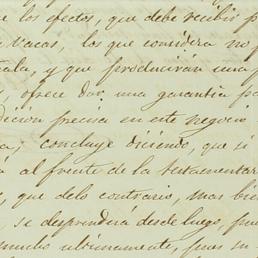 los efectos, que debe recibir p
vacas, los que considera no p
tala, y que producirán una
ofrece dar una garantia pa
dicion precisa en este negocio
a, concluye diciendo, que si
á al frente de la testamentar
, que delo contrario, mas bien
se desprenderá desde luego, pue
mucho ultimamente, pues